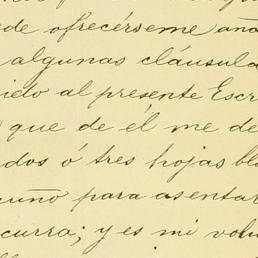 de ofrecérseme aña
algunas cláusula
ido al presente Escr
que de él me de
dos ó tres hojas bl
cuño para asentar
ocurra; y es mi volu